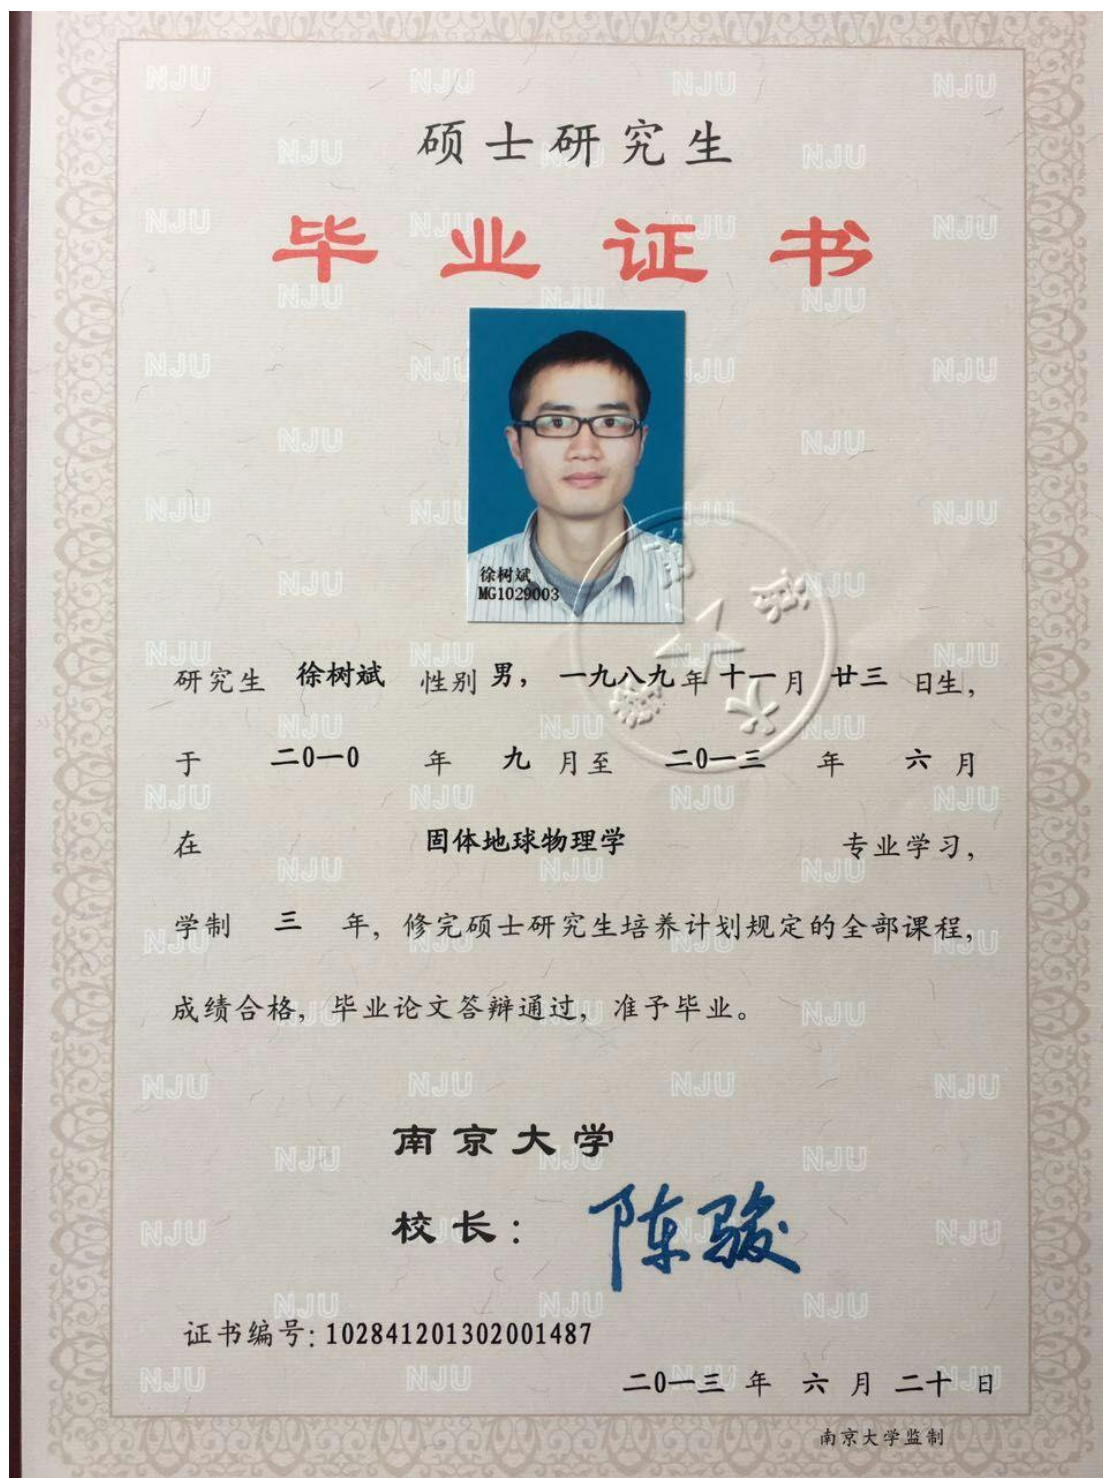 硕士研究生
毕业证书
徐树斌
MG1029003
南京大学
研究生 徐树斌 性别 男， 一九八九 年 十一 月 廿三 日生，
于 二0一0 年 九 月至 二0一三 年 六 月
在 固体地球物理学 专业学习，
学制 三 年，修完硕士研究生培养计划规定的全部课程，
成绩合格，毕业论文答辩通过，准予毕业。
南京大学
校长：陈骏
证书编号：102841201302001487
二0一三 年 六 月 二十 日
南京大学监制
NJU